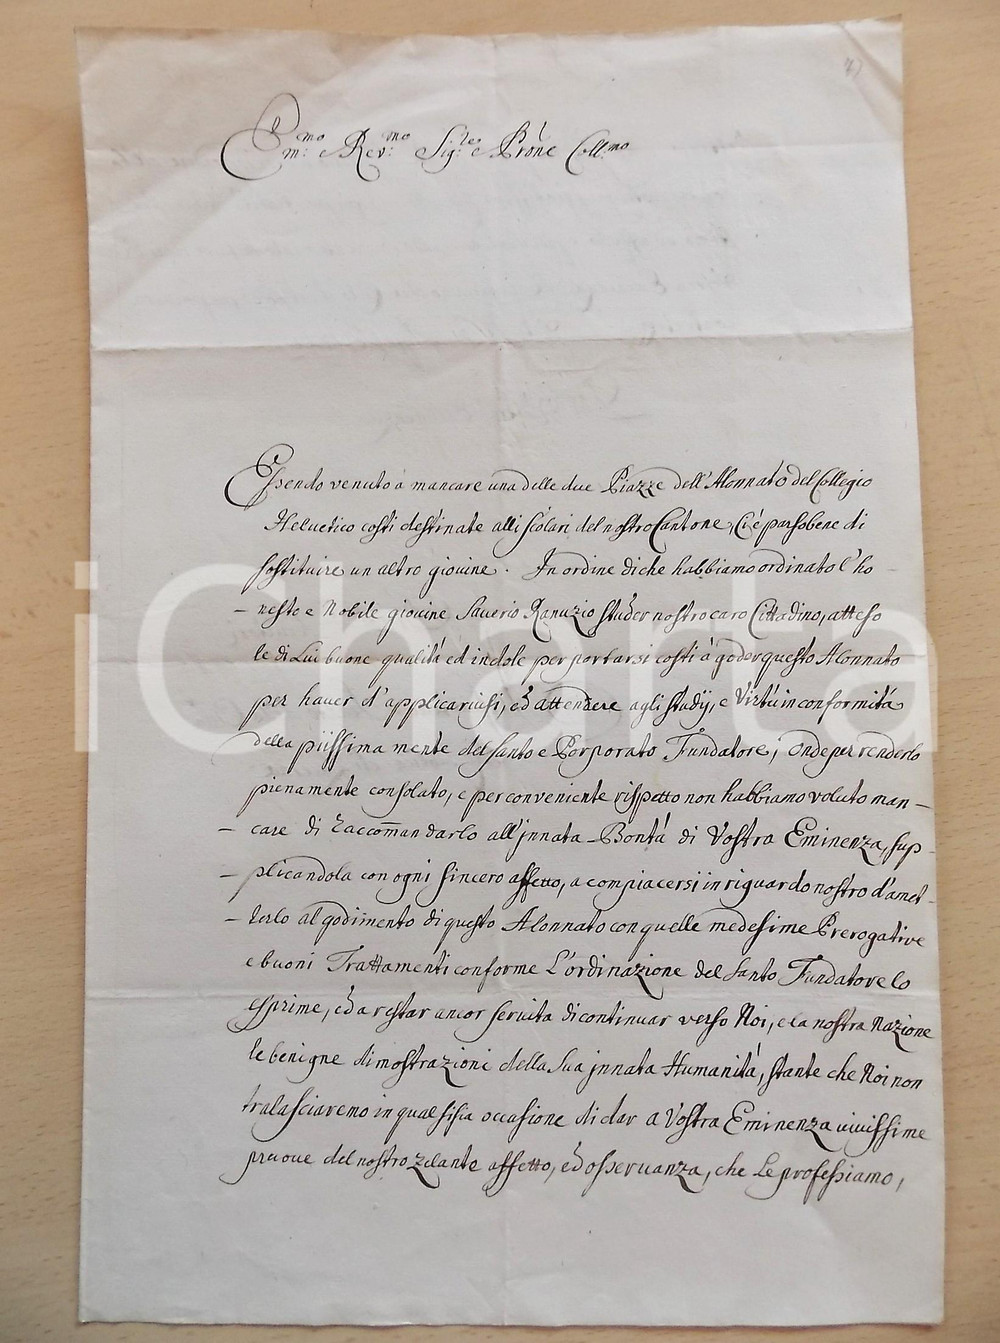 Em:mo e Rev:mo Sig:re e Prone Coll:mo
Essendo venuto à mancare una delle due Piazze dell'Alonnato del Collegio
Helvetico costi destinate alli scolari del nostro Cantone, Ci è parso bene di
sostituire un altro giovine. In ordine di che habbiamo ordinato l'ho
-nesto e Nobile giovine Saverio Ranuzio Studer nostro caro Cittadino, atteso
le di Lui buone qualità ed indole per portarsi costi à goder questo Alonnato
per haver d'applicarvisi, ed attendere agli studij, e Virtù in conformità
della piissima mente del Santo e Porporato Fundatore; Onde per renderlo
pienamente consolato, e per conveniente rispetto non habbiamo voluto man-
-care di raccomandarlo all'jnnata Bontà di Vostra Eminenza, sup-
-plicandola con ogni sincero affetto, a compiacersi in riguardo nostro d'amet-
-terlo al godimento di questo Alonnato con quelle medesime Prerogative
e buoni Trattamenti conforme L'ordinazione del Santo Fundatore lo
esprime, ed a restar ancor servita di continuar verso Noi, e la nostra Nazione
le benigne dimostrazioni della Sua jnnata Humanità, stante che Noi non
tralasciaremo in qual sisia occasione di dar a Vostra Eminenza vivissime
pruove del nostro zelante affetto, ed osservanza, che Le professiamo,
iCharta